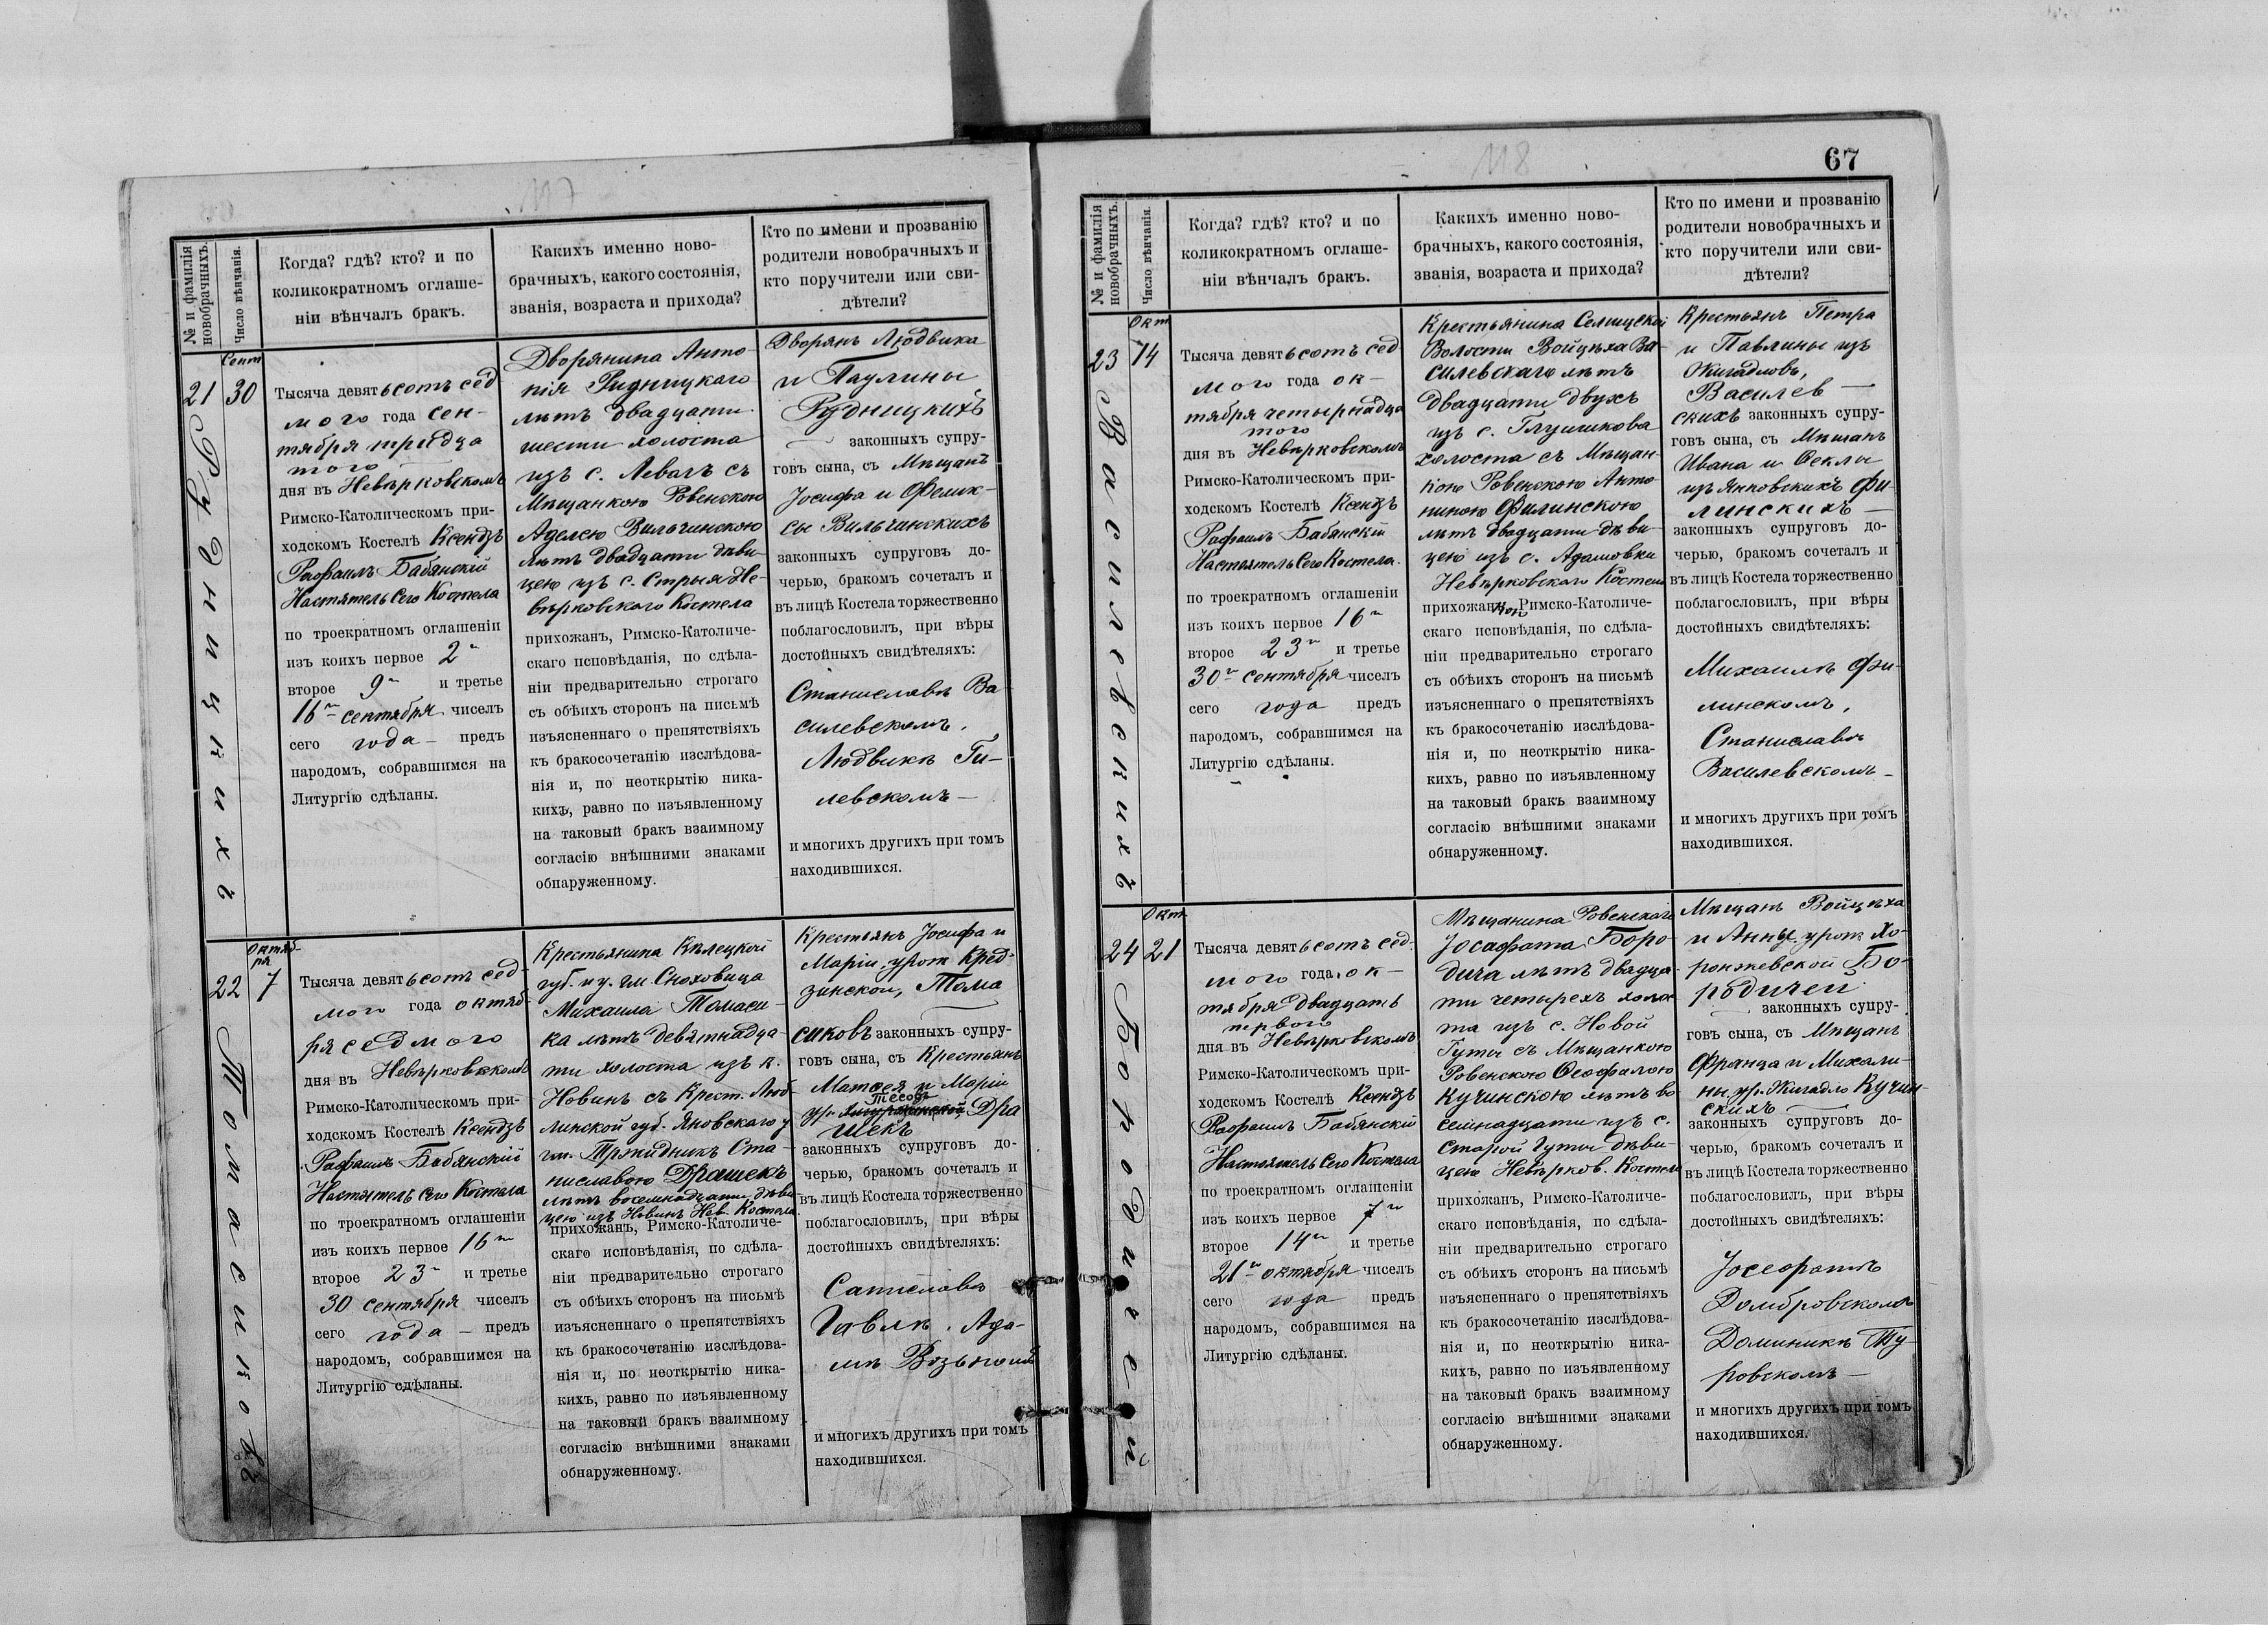 117
№ и фамилія новобрачныхъ.
Число вѣнчанія.
Когда? гдѣ? кто? и по
коликократномъ оглаше-
ніи вѣнчалъ бракъ.
Какихъ именно ново-
брачныхъ, какого состоянія,
званія, возраста и прихода?
Кто по имени и прозванію
родители новобрачныхъ и
кто поручители или сви-
дѣтели?
21
Рудницкихъ
Сент
30
Тысяча девятьсотъ сед
мого года сен-
тября тридца
того
дня въ Невѣрковскомъ
Римско-Католическомъ при-
ходскомъ Костелѣ Ксендзъ
Рафаилъ Бабянскій
Настоятель Сего Костела
по троекратномъ оглашеніи
изъ коихъ первое 2го
второе 9го и третье
16го сентября чиселъ
сего года — предъ
народомъ, собравшимся на
Литургію сдѣланы.
Дворянина Анто-
нія Рудницкаго
лѣтъ двадцати
шести холоста
изъ с. Левачъ съ
Мѣщанкою Ровенскою
Аделею Вильчинскою
лѣтъ двадцати дѣви-
цею изъ с. Стрыя Не-
вѣрковского Костела
прихожанъ, Римско-Католиче-
скаго исповѣданія, по сдѣла-
ніи предварительно строгаго
съ обѣихъ сторонъ на письмѣ
изъясненнаго о препятствіяхъ
къ бракосочетанію изслѣдова-
нія и, по неоткрытію ника-
кихъ, равно по изъявленному
на таковый бракъ взаимному
согласію внѣшними знаками
обнаруженному.
Дворянъ Людвика
и Паулины
Рудницкихъ
законныхъ супру-
говъ сына, съ Мѣщанъ
Іосифа и Фелик-
сы Вильчинскихъ
законныхъ супруговъ до-
черью, бракомъ сочеталъ и
въ лицѣ Костела торжественно
поблагословилъ, при вѣры
достойныхъ свидѣтеляхъ:
Станиславѣ Ва-
силевскомъ,
Людвикѣ Ги-
левскомъ —
и многихъ другихъ при томъ
находившихся.
22
Томасиковъ
Октяб-
ря
7
Тысяча девятьсотъ сед-
мого года октяб-
ря седмого
дня въ Невѣрковскомъ
Римско-Католическомъ при-
ходскомъ Костелѣ Ксендзъ
Рафаилъ Бабянскій
Настоятель Сего Костела
по троекратномъ оглашеніи
изъ коихъ первое 16го
второе 23го и третье
30 сентября чиселъ
сего года — предъ
народомъ, собравшимся на
Литургію сдѣланы.
Крестьянина Кѣлецкой
губ. и у. гм. Сноховица
Михаила Томаси-
ка лѣтъ девятнадца-
ти холоста изъ к.
Новинъ съ Крест. Люб-
линской губ. Яновскаго у
гм. Тржидникъ Ста-
ниславою Драшекъ
лѣтъ восемнадцати дѣви
цею изъ Новинъ Нев. Костела
прихожанъ, Римско-Католиче-
скаго исповѣданія, по сдѣла-
ніи предварительно строгаго
съ обѣихъ сторонъ на письмѣ
изъясненнаго о препятствіяхъ
къ бракосочетанію изслѣдова-
нія и, по неоткрытію ника-
кихъ, равно по изъявленному
на таковый бракъ взаимному
согласію внѣшними знаками
обнаруженному.
Крестьянъ Іосифа и
Маріи урож Кред-
зинской, Тома
сиковъ законныхъ супру-
говъ сына, съ Крестьянъ
Матѳея и Маріи
Тесовъ
ур. Дра
шекъ
законныхъ супруговъ до-
черью, бракомъ сочеталъ и
въ лицѣ Костела торжественно
поблагословилъ, при вѣры
достойныхъ свидѣтеляхъ:
Саниславѣ
Гавлѣ. Ада-
мѣ
и многихъ другихъ при томъ
находившихся.
118
67
№ и фамилія новобрачныхъ.
Число вѣнчанія.
Когда? гдѣ? кто? и по
коликократномъ оглаше-
ніи вѣнчалъ бракъ.
Какихъ именно ново-
брачныхъ, какого состоянія,
званія, возраста и прихода?
Кто по имени и прозванію
родители новобрачныхъ и
кто поручители или сви-
дѣтели?
23
Василевскихъ
Окт
14
Тысяча девятьсотъ сед
мого года ок-
тября четырнадца
того
дня въ Невѣрковскомъ
Римско-Католическомъ при-
ходскомъ Костелѣ Ксендзъ
Рафаилъ Бабянскій
Настоятель Сего Костела.
по троекратномъ оглашеніи
изъ коихъ первое 16го
второе 23го и третье
30го сентября чиселъ
сего года предъ
народомъ, собравшимся на
Литургію сдѣланы.
Крестьянина Селищской
Волости Войцѣха Ва-
силевскаго лѣтъ
двадцати двухъ
изъ с. Глушкова
холоста съ Мѣщан-
кою Ровенскою Анто
ниною Филинскою
лѣтъ двадцати дѣви-
цею изъ с. Адамовки
Невѣрковскаго Костела
прихожанкою Римско-Католиче-
скаго исповѣданія, по сдѣла-
ніи предварительно строгаго
съ обѣихъ сторонъ на письмѣ
изъясненнаго о препятствіяхъ
къ бракосочетанію изслѣдова-
нія и, по неоткрытію ника-
кихъ, равно по изъявленному
на таковый бракъ взаимному
согласію внѣшними знаками
обнаруженному.
Крестьянъ Петра
и Павлины изъ
Жигадловъ,
Василев —
скихъ законныхъ супру-
говъ сына, съ Мѣщанъ
Ивана и Ѳеклы
изъ Янковскихъ Фи-
линскихъ —
законныхъ супруговъ до-
черью, бракомъ сочеталъ и
въ лицѣ Костела торжественно
поблагословилъ, при вѣры
достойныхъ свидѣтеляхъ:
Михаилѣ Фи-
линскомъ,
Станиславѣ
Василевскомъ —
и многихъ другихъ при томъ
находившихся.
24
Бородичей
Окт.
21
Тысяча девятьсотъ сед-
мого года ок-
тября двадцать
первого
дня въ Невѣрковскомъ
Римско-Католическомъ при-
ходскомъ Костелѣ Ксендзъ
Рафаилъ Бабянскій
Настоятель Сего Костела
по троекратномъ оглашеніи
изъ коихъ первое 7го
второе 14го и третье
21го октября чиселъ
сего года предъ
народомъ, собравшимся на
Литургію сдѣланы.
Мѣщанина Ровенскаго
Іосафата Боро-
дича лѣтъ двадца-
ти четырехъ холос
та изъ с. Новой
Гуты съ Мѣщанкою
Ровенскою Ѳеофилою
Кучинскою лѣтъ во
семнадцати изъ с.
Старой Гуты дѣви-
цею Невѣрков. Костела
прихожанъ, Римско-Католиче-
скаго исповѣданія, по сдѣла-
ніи предварительно строгаго
съ обѣихъ сторонъ на письмѣ
изъясненнаго о препятствіяхъ
къ бракосочетанію изслѣдова-
нія и, по неоткрытію ника-
кихъ, равно по изъявленному
на таковый бракъ взаимному
согласію внѣшними знаками
обнаруженному.
Мѣщанъ Войцѣха
и Анны урож Хо-
ронжевской Бо-
родичей
законныхъ супру-
говъ сына, съ Мѣщанъ
Франца и Михали-
ны ур. Жигадло Кучин-
скихъ
законныхъ супруговъ до-
черью, бракомъ сочеталъ и
въ лицѣ Костела торжественно
поблагословилъ, при вѣры
достойныхъ свидѣтеляхъ:
Іосафатѣ
Домбровскомъ
Доминикѣ Ту-
ровскомъ —
и многихъ другихъ при томъ
находившихся.